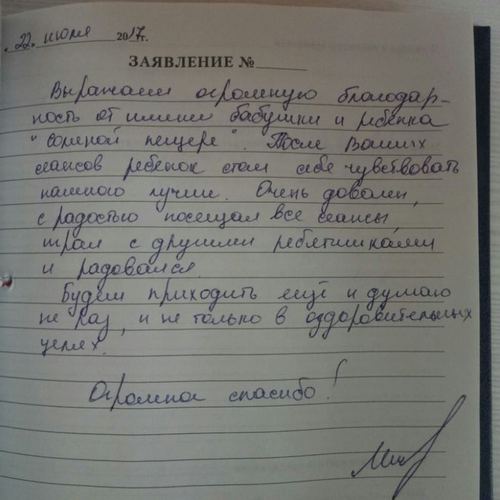 22. июля 2017г.
ЗАЯВЛЕНИЕ №
Выражаем огромную благодар-
ность от имени бабушки и ребёнка
"соленой пещере". После Ваших
сеансов ребёнок стал себя чувствовать
намного лучше. Очень доволен,
с радостью посещал все сеансы,
играл с другими ребятишками
и радовался.
Будем приходить ещё и думаю
не раз, и не только в оздоровительных
целях.
Огромное спасибо!